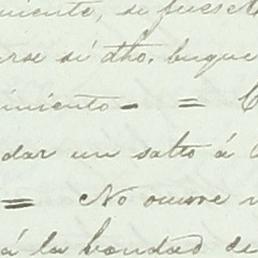 miente, si fuese
si dho. buque
imiento - =
dar un salto á
= No ocurre
á la bondad de